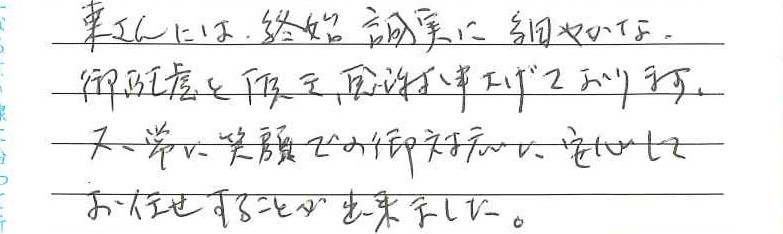 東さんには、終始誠実に細やかな、
御配慮を頂き、感謝申し上げております。
又、常に笑顔での御対応に、安心して
お任せすることが出来ました。